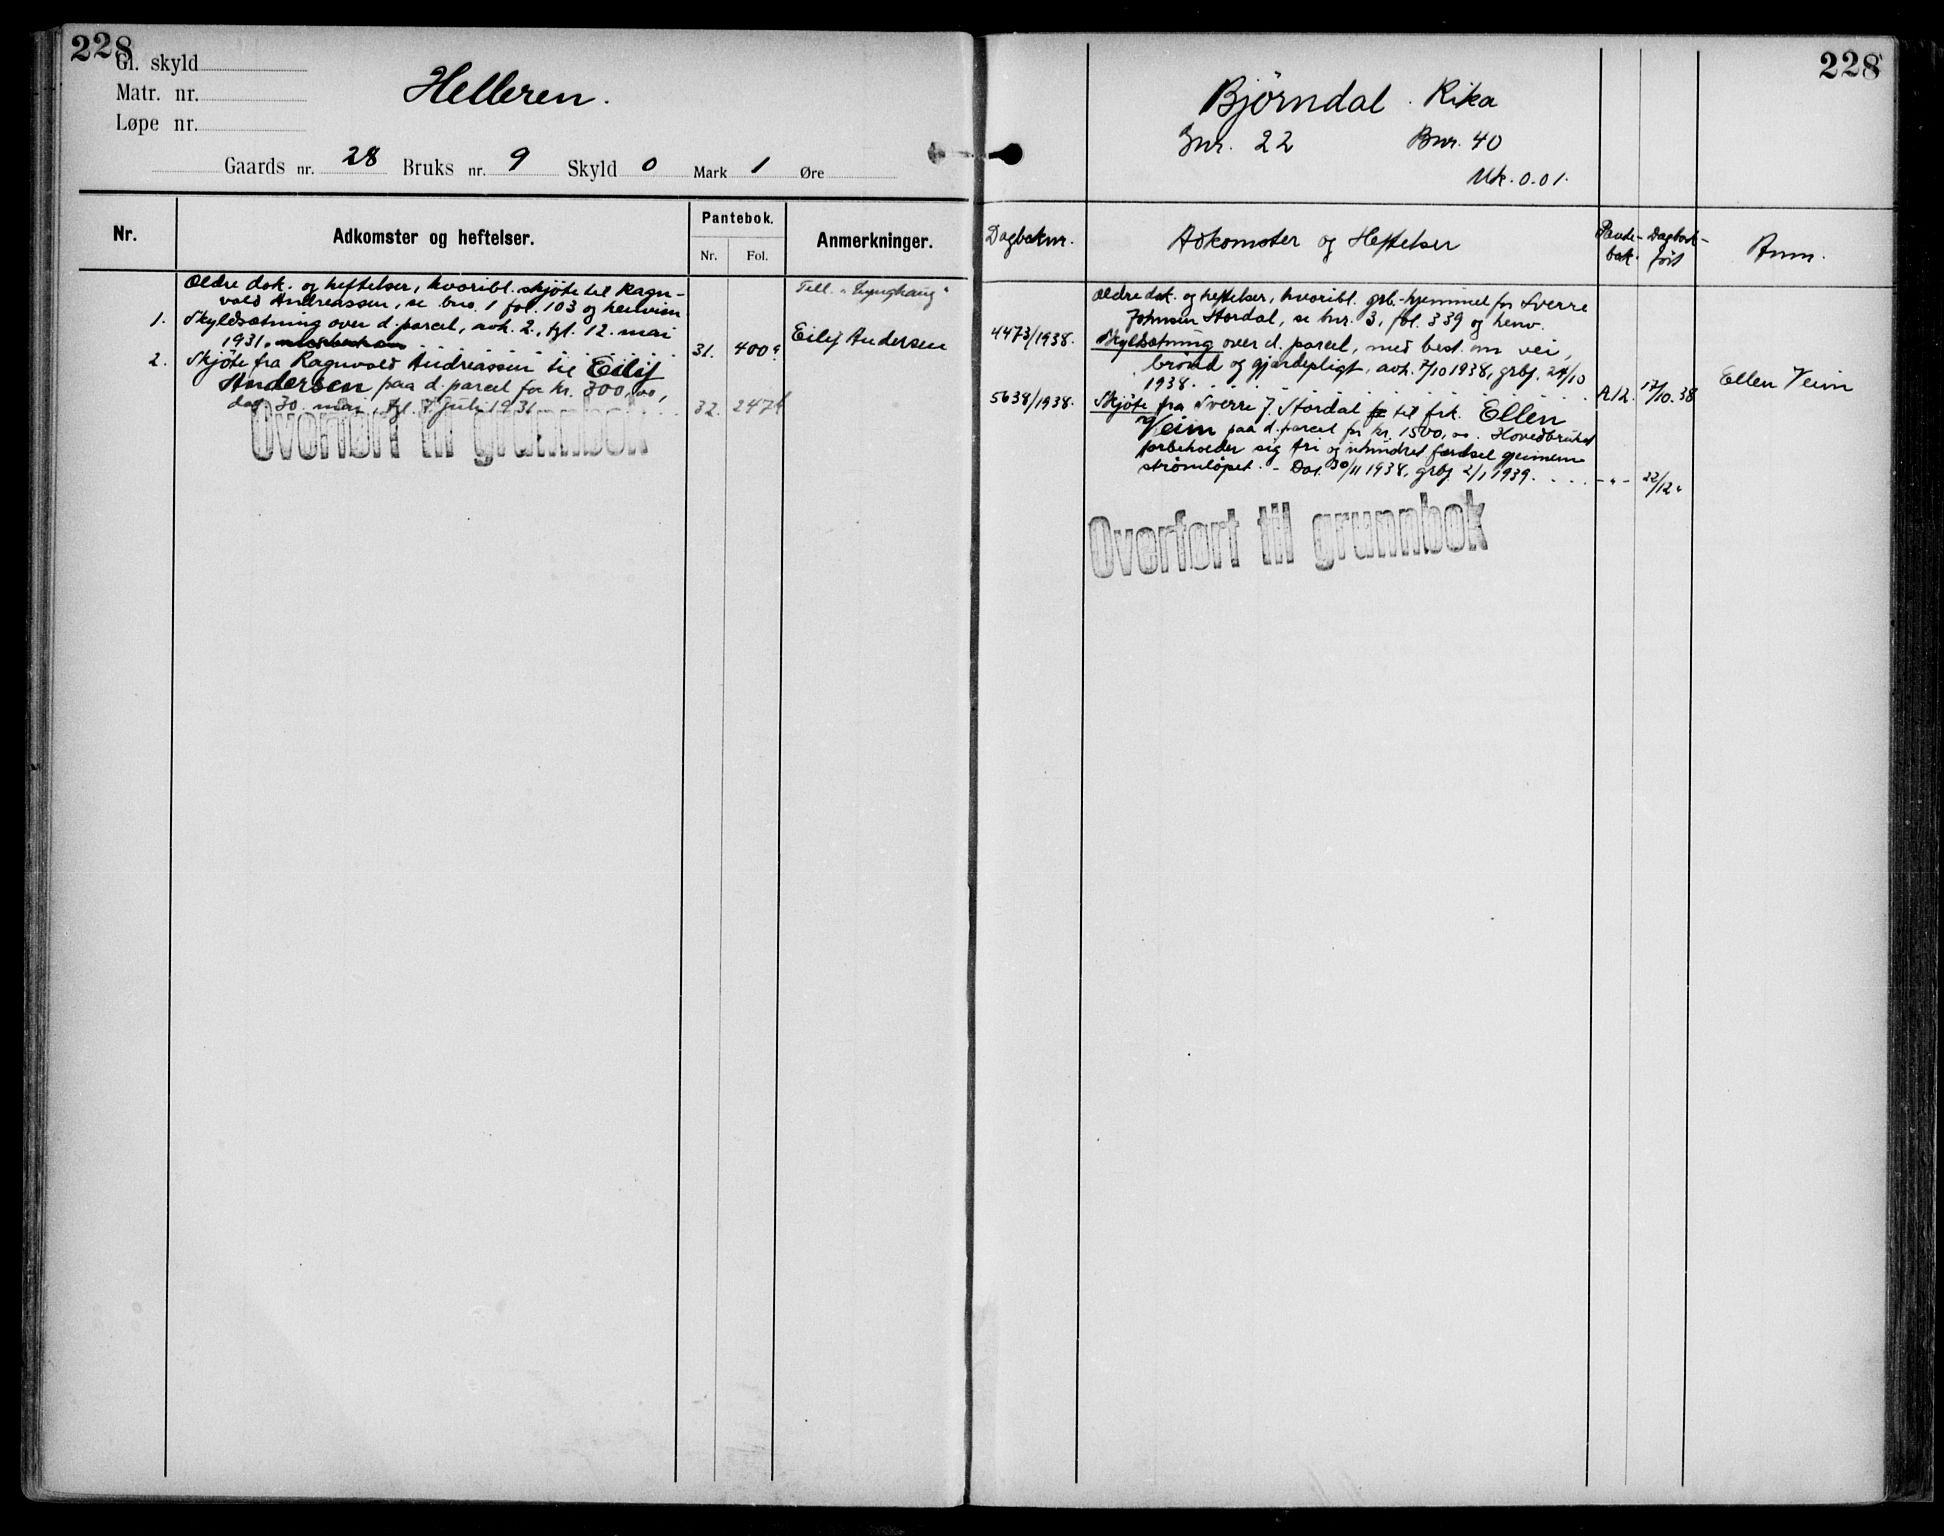 228
Gl. skyld
Matr. nr.
Løpe nr.
Helleren.
Gaards nr. 28 Bruks nr. 9 Skyld 0 Mark 1 Øre
Nr.
Adkomster og heftelser.
Pantebok.
Nr. Fol.
Anmerkninger.
Ældre dok. og heftelser, hvoribl. skjøte til Ragn-
vald Andreassen, se bno. 1 fol. 103 og henvisn
1. Skyldsætning over d. parcel, avh. 2., tgl. 12. mai
1931. 31. 400a
2. Skjøte fra Ragnvald Andreassen til Eilif
Andersen paa d. parcel for kr. 300,00,
dat 30. mai, tgl. 7 juli 1931 32. 247b
Till. "Lynghaug"
Eilif Andersen
Overført til grunnbok
228
Bjørndal. Rika
Gnr. 22 Bnr. 40
Mk. 0.01.
Dagboknr.
Adkomster og Heftelser
Pante-
bok.
Dagbok-
ført
Anm.
Ældre dok. og heftelser, hvoribl. grb.-hjemmel for Sverre
Johnsen Stordal, se bnr. 3, fol. 339 og henv.
4473/1938. Skyldsætning over d. parcel, med best. om vei,
brønd og gjerdepligt, avh. 7/10 1938, grbf. 24/10
1938. A12. 17/10.38
5638/1938. Skjøte fra Sverre J. Stordal til frk. Ellen
Veim paa d. parcel for kr. 1500,00. Hovedbruket
forbeholder sig fri og uhindret færdsel gjennem
strømløpet. - Dat. 30/11 1938, grbf 2/1 1939. -"- 22/12 "
Ellen Veim
Overført til grunnbok